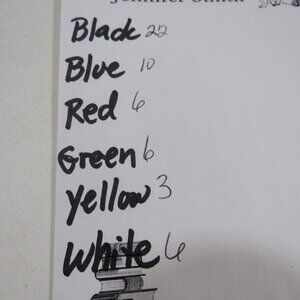 Jennifer Smith
Black 22
Blue 10
Red 6
Green 6
Yellow 3
White 6